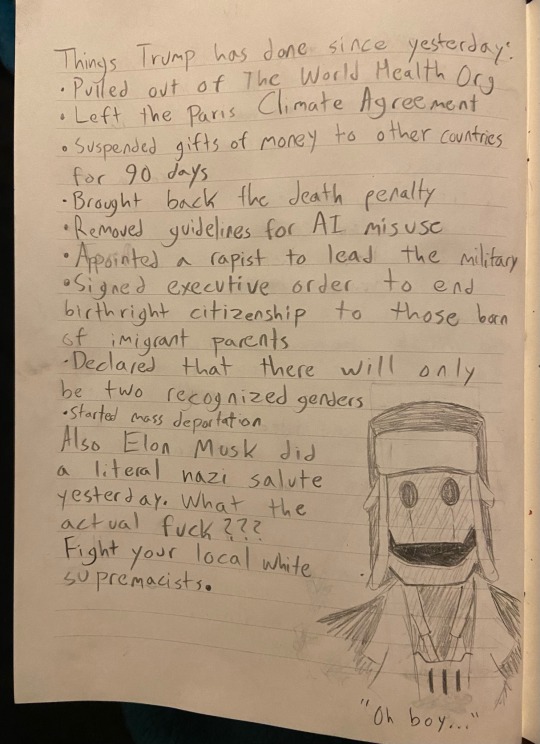 Things Trump has done since yesterday:
• Pulled out of The World Health Org
• Left the Paris Climate Agreement
• Suspended gifts of money to other countries
for 90 days
• Brought back the death penalty
• Removed guidelines for AI misuse
• Appointed a rapist to lead the military
• Signed executive order to end
birthright citizenship to those born
of imigrant parents
• Declared that there will only
be two recognized genders
• Started mass deportation
Also Elon Musk did
a literal nazi salute
yesterday. What the
actual fuck???
Fight your local white
supremacists.
"Oh boy..."